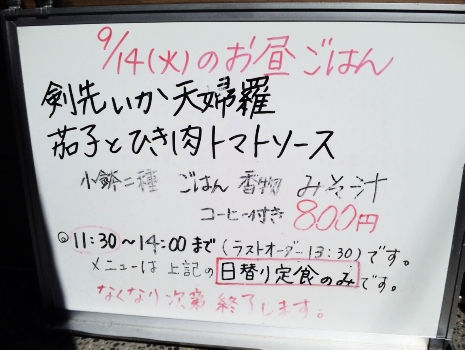 9/14(火)のお昼ごはん
剣先いか天婦羅
茄子とひき肉トマトソース
小鉢二種 ごはん 香物 みそ汁
コーヒー付き 800円
◎11:30〜14:00まで(ラストオーダー13:30)です。
メニューは上記の日替り定食のみです。
なくなり次第終了します。